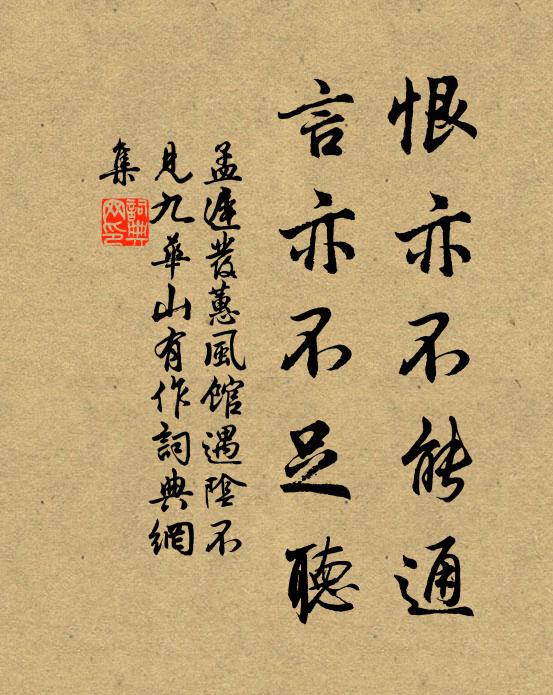 恨亦不能通
言亦不足聽
孟遲發蕙風館遇陰不
見九華山有作詞典網
集
詞典網印